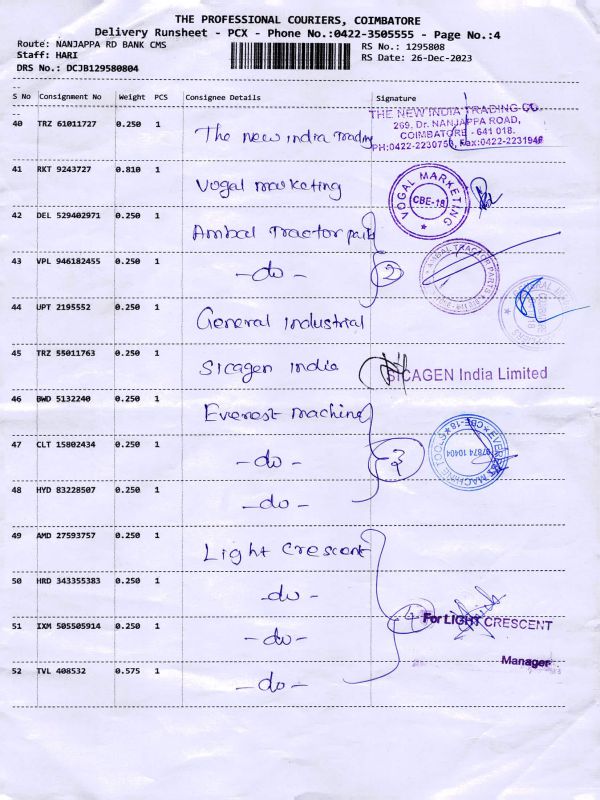 THE PROFESSIONAL COURIERS, COIMBATORE
Delivery Runsheet - PCX - Phone No.:0422-3505555 - Page No.:4
Route: NANJAPPA RD BANK CMS
RS No.: 1295808
Staff: HARI
RS Date: 26-Dec-2023
DRS No.: DCJB129580804
S No Consignment No Weight PCS Consignee Details Signature
40 TRZ 61011727 0.250 1 The new india Trading
THE NEW INDIA TRADING CO.
269, Dr. NANJAPPA ROAD,
COIMBATORE - 641 018.
PH:0422-2230753, Fax:0422-2231946
41 RKT 9243727 0.810 1 Vogal marketing
VOGAL MARKETING
CBE-18
42 DEL 529402971 0.250 1 Ambal Tractor parts
43 VPL 946182455 0.250 1 -do- 2
AMBAL TRACTOR PARTS
44 UPT 2195552 0.250 1 General industrial
45 TRZ 55011763 0.250 1 Sicagen india
SICAGEN India Limited
46 BWD 5132240 0.250 1 Everest machine
47 CLT 15802434 0.250 1 -do- 3
EVEREST MACHINE TOOLS
CBE-18
97874 10404
48 HYD 83228507 0.250 1 -do-
49 AMD 27593757 0.250 1 Light Crescent
50 HRD 343355383 0.250 1 -do-
51 IXM 505505914 0.250 1 -do- 4
For LIGHT CRESCENT
Manager
52 TVL 408532 0.575 1 -do-